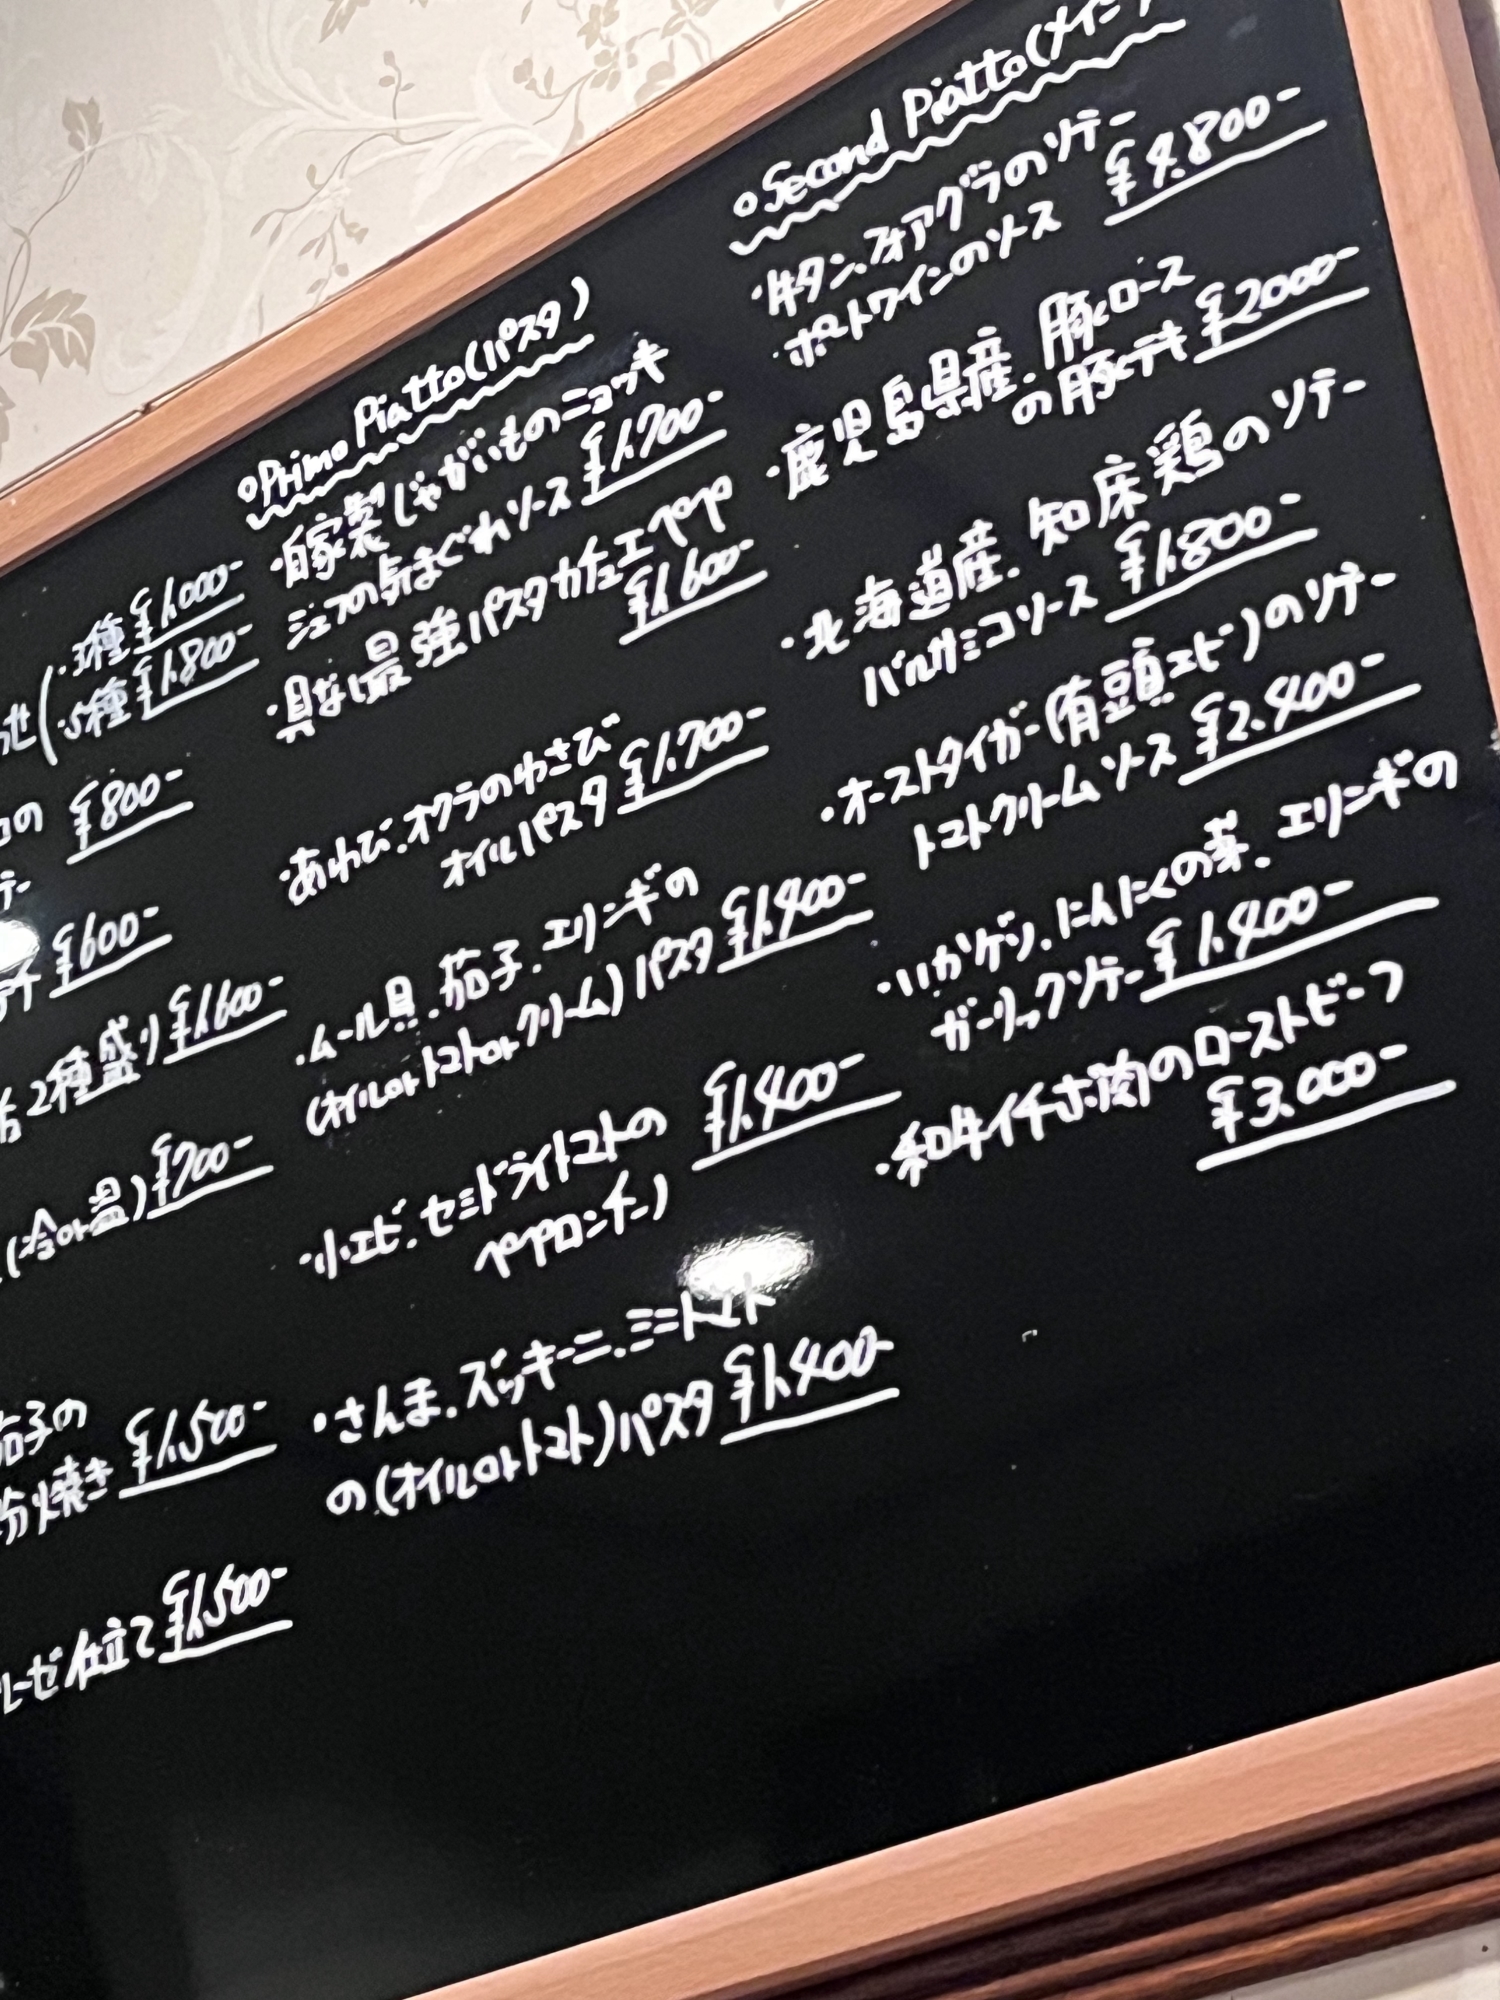 ・3種 ¥1,000-
・5種 ¥1,800-
¥800-
¥600-
2種盛り ¥1,600-
(冷or温) ¥700-
茄子の
焼き ¥1,500-
ルーゼ仕立て ¥1,500-
○Primo Piatto(パスタ)
・自家製じゃがいものニョッキ
シェフの気まぐれソース ¥1,700-
・具なし最強パスタカチョエペペ
¥1,600-
・あわび、オクラのわさび
オイルパスタ ¥1,700-
・ムール貝、茄子、エリンギの
(オイルorトマトorクリーム)パスタ ¥1,400-
・小エビ、セミドライトマトの ¥1,400-
ペペロンチーノ
・さんま、ズッキーニ、ミニトマト
の(オイルorトマト)パスタ ¥1,400-
○Second Piatto(メイン)
・牛タン、フォアグラのソテー
ポートワインのソース ¥4,800-
・鹿児島県産、豚ロース
の豚テキ ¥2000-
・北海道産、知床鶏のソテー
バルサミコソース ¥1,800-
・ゴーストタイガー(有頭エビ)のソテー
トマトクリームソース ¥2,400-
・いかゲソ、にんにくの芽、エリンギの
ガーリックソテー ¥1,400-
・和牛イチボ肉のローストビーフ
¥3,000-